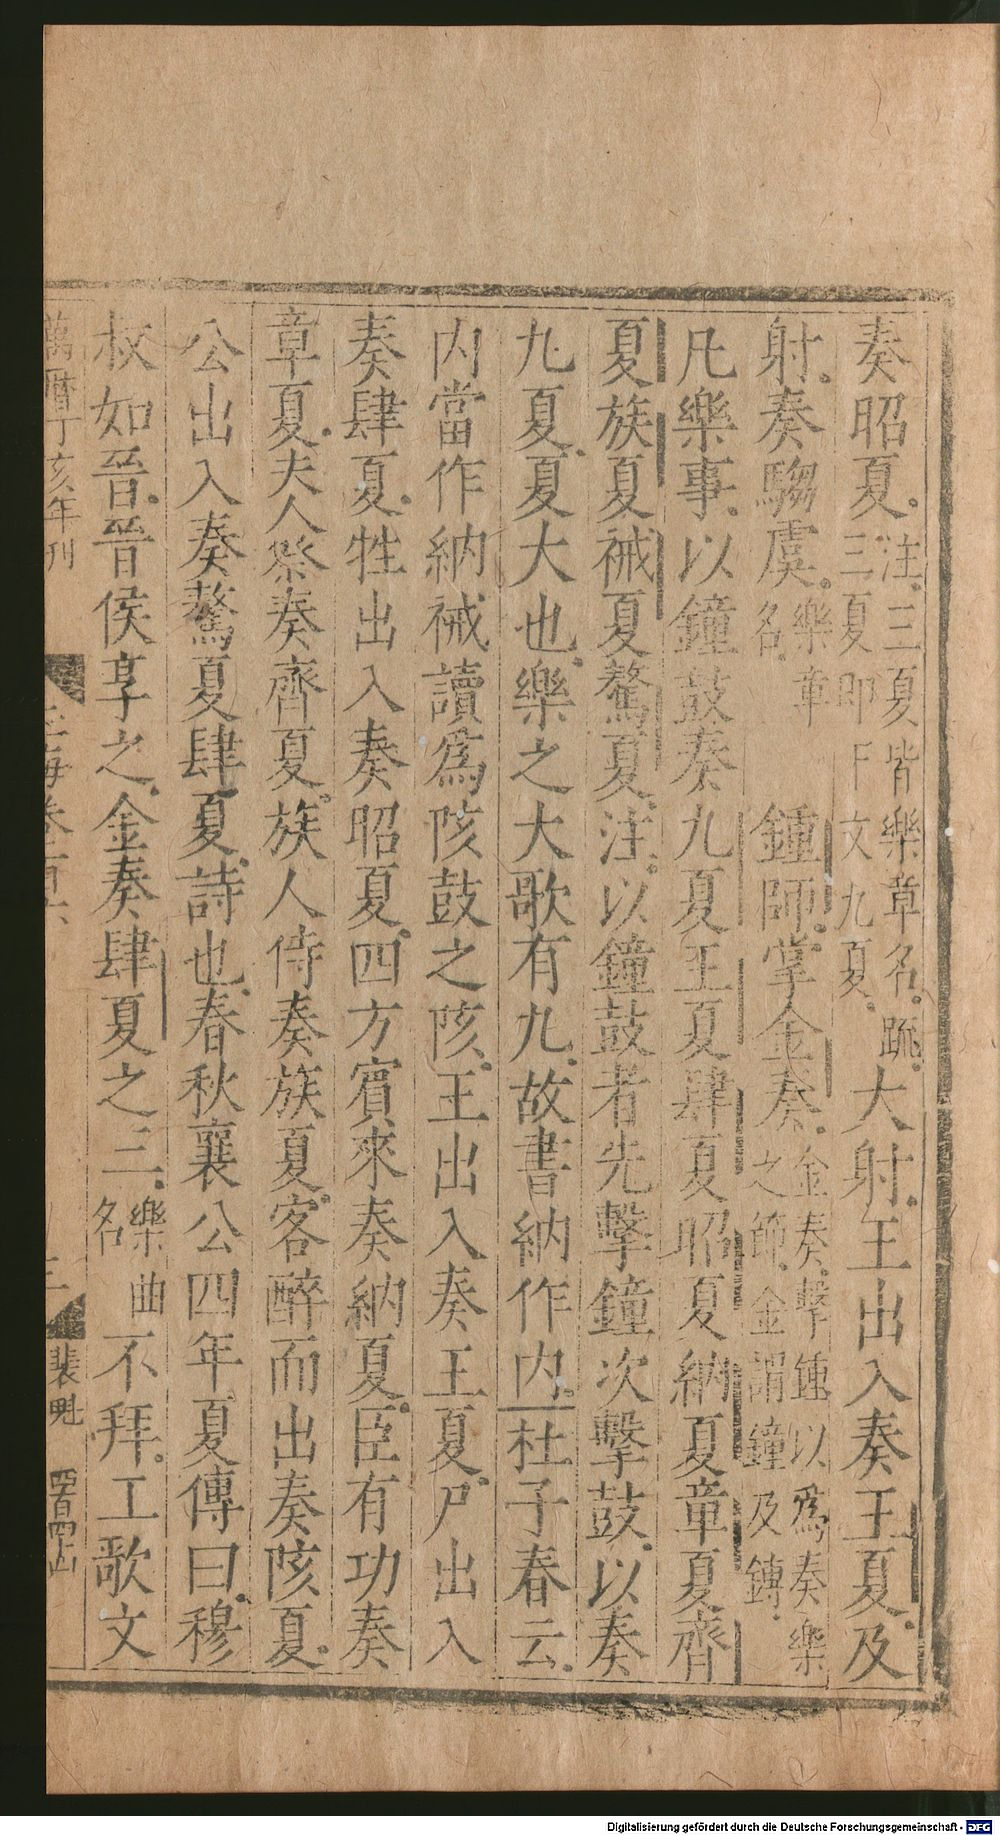 奏昭夏。注。三夏皆樂章名。疏。三夏即下文九夏。大射。王出入奏王夏。及
射。奏騶虞。樂章名。鍾師。掌金奏。金奏。擊鍾以爲奏樂之節。金謂鐘及鎛。
凡樂事。以鐘鼓奏九夏王夏肆夏昭夏納夏章夏齊
夏族夏祴夏驁夏。注。以鐘鼓者先擊鐘次擊鼓。以奏
九夏。夏大也。樂之大歌有九。故書納作内。杜子春云。
内當作納祴讀爲陔鼓之陔。王出入奏王夏。尸出入
奏肆夏。牲出入奏昭夏。四方賓來奏納夏。臣有功奏
章夏。夫人祭奏齊夏。族人侍奏族夏。客醉而出奏陔夏。
公出入奏驁夏肆夏。詩也。春秋襄公四年夏傳曰。穆
叔如晉。晉侯享之。金奏肆夏之三。樂曲名不拜。工歌文
萬曆丁亥年刊
玉海卷一百六
三
裴魁
四百四十
Digitalisierung gefördert durch die Deutsche Forschungsgemeinschaft - DFG